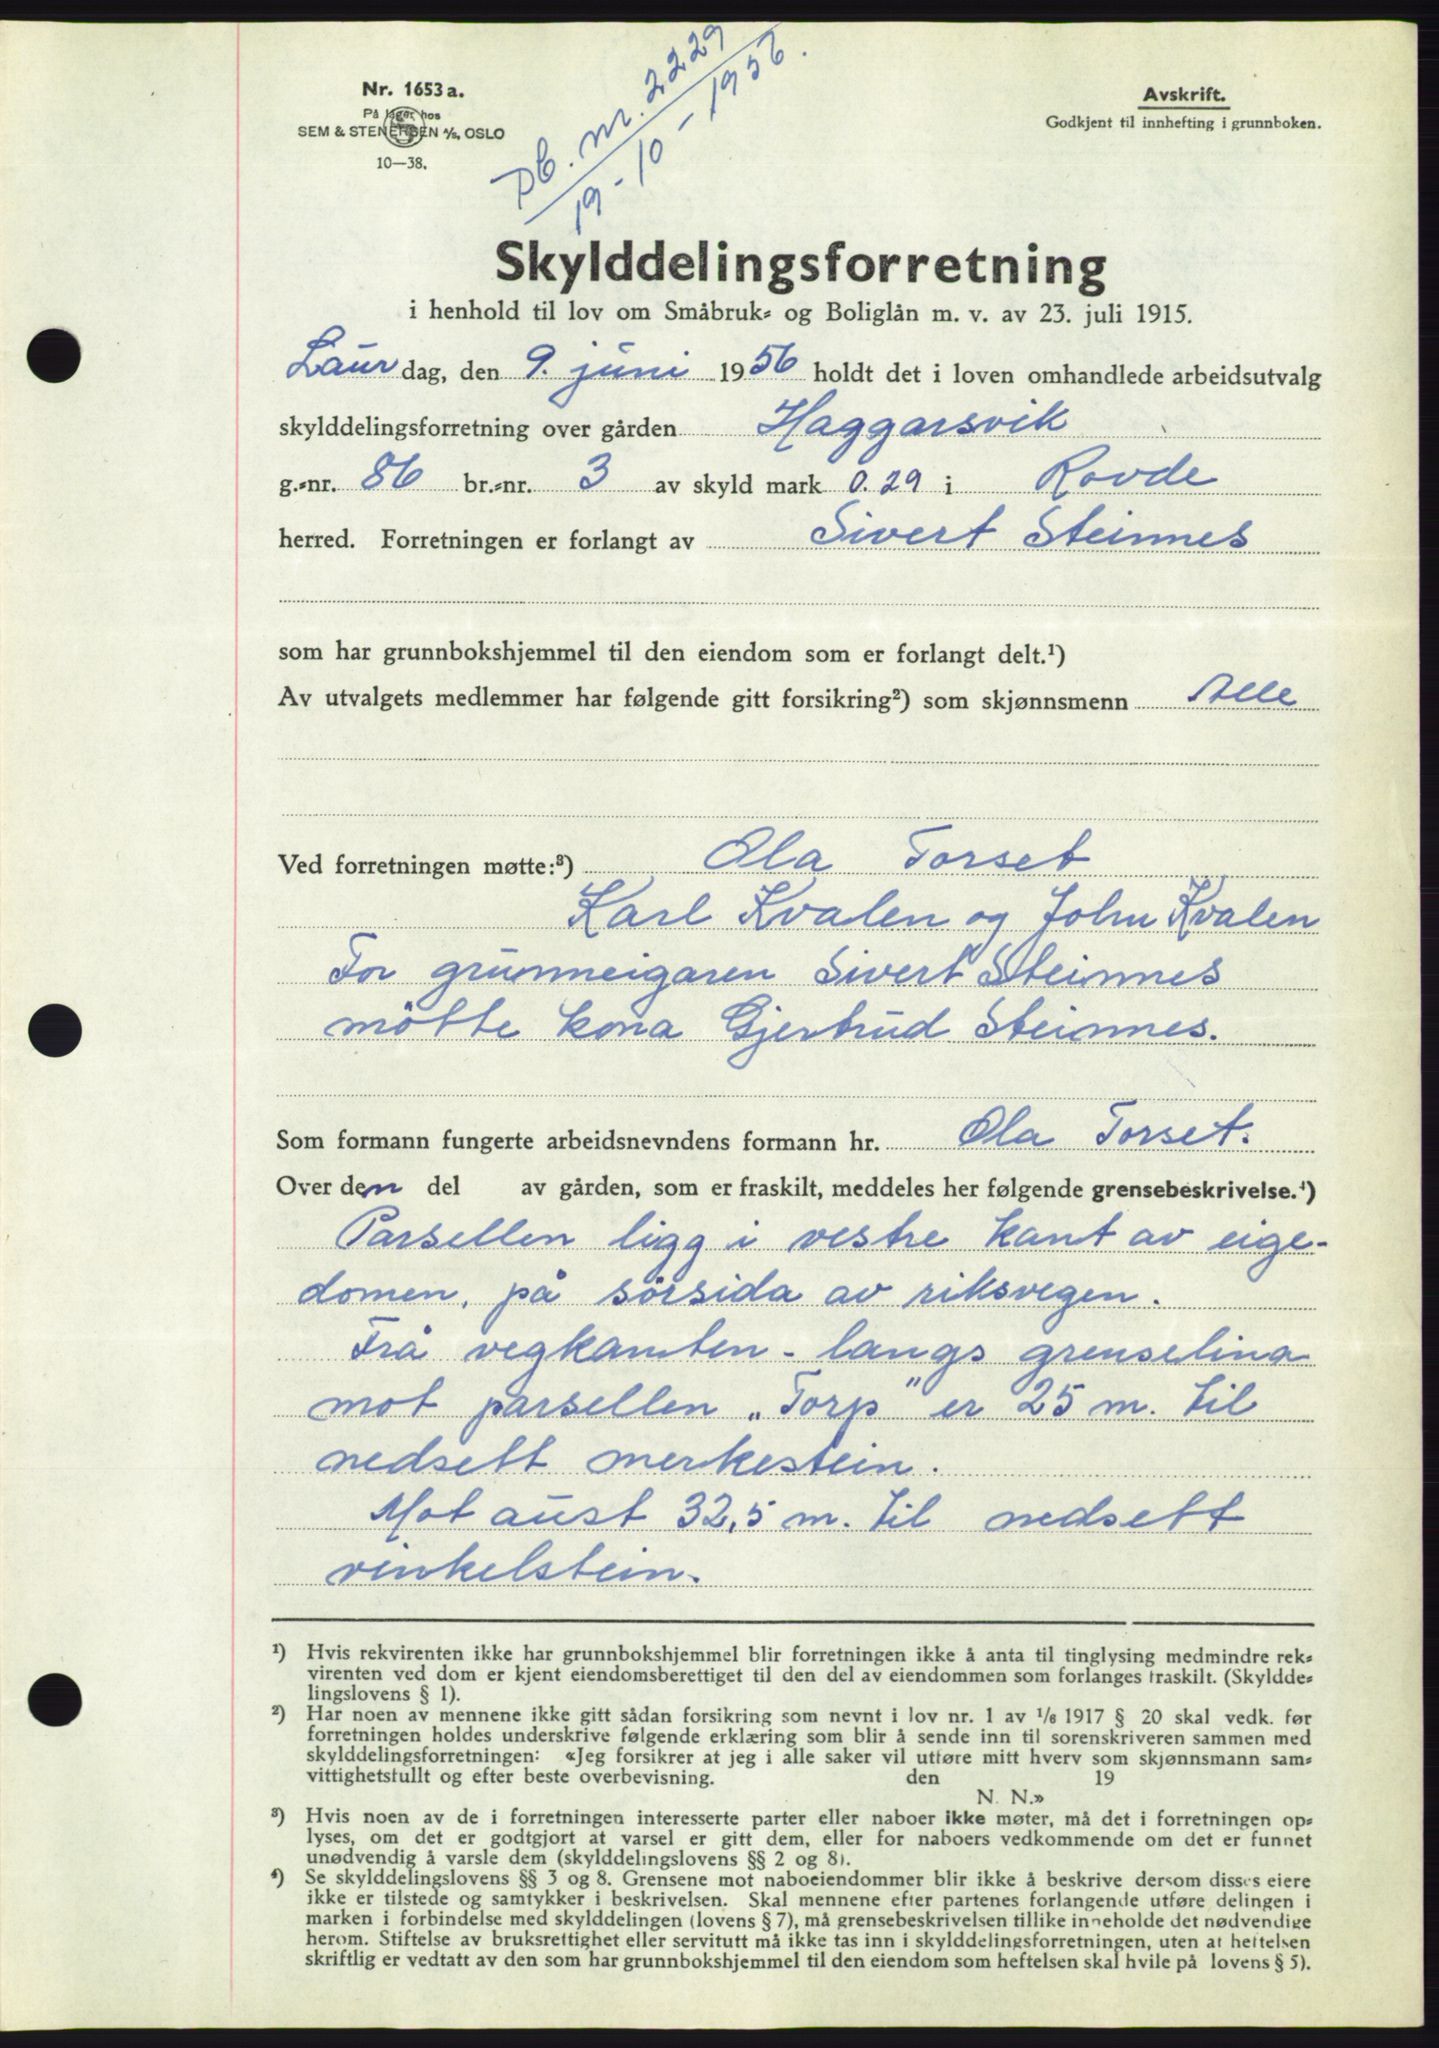 Nr. 1653 a.
På lager hos
SEM & STENERSEN A/S, OSLO
10—38.
Db. nr. 2229
19-10-1956.
Avskrift.
Godkjent til innhefting i grunnboken.
Skylddelingsforretning
i henhold til lov om Småbruk- og Boliglån m. v. av 23. juli 1915.
Laurdag, den 9. juni 1956 holdt det i loven omhandlede arbeidsutvalg
skylddelingsforretning over gården Haggarsvik
g.-nr. 86 br.-nr. 3 av skyld mark 0.29 i Rovde
herred. Forretningen er forlangt av Sivert Steinnes
som har grunnbokshjemmel til den eiendom som er forlangt delt.¹)
Av utvalgets medlemmer har følgende gitt forsikring²) som skjønnsmenn Alle
Ved forretningen møtte:³) Ola Torset
Karl Kvalen og John Kvalen
For grunneigaren Sivert Steinnes
mötte kona Gjertrud Steinnes.
Som formann fungerte arbeidsnevndens formann hr. Ola Torset.
Over den del av gården, som er fraskilt, meddeles her følgende grensebeskrivelse.⁴)
Parsellen ligg i vestre kant av eige-
domen, på sörsida av riksvegen.
Frå vegkanten - langs grenselina
mot parsellen „Torp" er 25 m. til
nedsett merkestein.
Mot aust 32,5 m. til nedsett
vinkelstein.
¹) Hvis rekvirenten ikke har grunnbokshjemmel blir forretningen ikke å anta til tinglysing medmindre rek-
virenten ved dom er kjent eiendomsberettiget til den del av eiendommen som forlanges fraskilt. (Skyldde-
lingslovens § 1).
²) Har noen av mennene ikke gitt sådan forsikring som nevnt i lov nr. 1 av 1/6 1917 § 20 skal vedk. før
forretningen holdes underskrive følgende erklæring som blir å sende inn til sorenskriveren sammen med
skylddelingsforretningen: «Jeg forsikrer at jeg i alle saker vil utføre mitt hverv som skjønnsmann sam-
vittighetsfullt og efter beste overbevisning. den 19
N. N.»
³) Hvis noen av de i forretningen interesserte parter eller naboer ikke møter, må det i forretningen op-
lyses, om det er godtgjort at varsel er gitt dem, eller for naboers vedkommende om det er funnet
unødvendig å varsle dem (skylddelingslovens §§ 2 og 8).
⁴) Se skylddelingslovens §§ 3 og 8. Grensene mot naboeiendommer blir ikke å beskrive dersom disses eiere
ikke er tilstede og samtykker i beskrivelsen. Skal mennene efter partenes forlangende utføre delingen i
marken i forbindelse med skylddelingen (lovens § 7), må grensebeskrivelsen tillike inneholde det nødvendige
herom. Stiftelse av bruksrettighet eller servitutt må ikke tas inn i skylddelingsforretningen, uten at heftelsen
skriftlig er vedtatt av den som har grunnbokshjemmel til den eiendom som heftelsen skal hvile på lovens § 5).